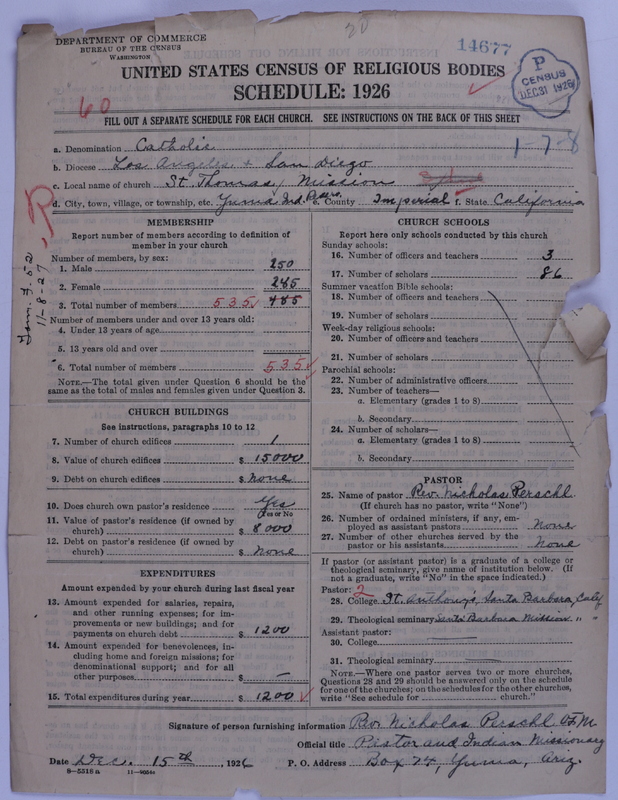 20
14677
DEPARTMENT OF COMMERCE
BUREAU OF THE CENSUS
WASHINGTON
P
CENSUS
DEC 31 1926
UNITED STATES CENSUS OF RELIGIOUS BODIES
SCHEDULE: 1926
60
FILL OUT A SEPARATE SCHEDULE FOR EACH CHURCH. SEE INSTRUCTIONS ON THE BACK OF THIS SHEET
1-7-8
a. Denomination Catholic
b. Diocese Los Angeles & San Diego
c. Local name of church St Thomas, Mission
d. City, town, village, or township, etc. Yuma Ind. Res. e. County Imperial f. State California
R
11-8-27
MEMBERSHIP
Report number of members according to definition of member in your church
Number of members, by sex:
1. Male 250
2. Female 285
3. Total number of members 535 485
Number of members under and over 13 years old:
4. Under 13 years of age
5. 13 years old and over
6. Total number of members 535
NOTE.—The total given under Question 6 should be the same as the total of males and females given under Question 3.
CHURCH BUILDINGS
See instructions, paragraphs 10 to 12
7. Number of church edifices 1
8. Value of church edifices $ 15000
9. Debt on church edifices $ none
10. Does church own pastor's residence Yes
(Yes or No)
11. Value of pastor's residence (if owned by church) $ 8000
12. Debt on pastor's residence (if owned by church) $ None
EXPENDITURES
Amount expended by your church during last fiscal year
13. Amount expended for salaries, repairs, and other running expenses; for improvements or new buildings; and for payments on church debt $ 1200
14. Amount expended for benevolences, including home and foreign missions; for denominational support; and for all other purposes $ —
15. Total expenditures during year $ 1200
CHURCH SCHOOLS
Report here only schools conducted by this church
Sunday schools:
16. Number of officers and teachers 3
17. Number of scholars 86
Summer vacation Bible schools:
18. Number of officers and teachers
19. Number of scholars
Week-day religious schools:
20. Number of officers and teachers
21. Number of scholars
Parochial schools:
22. Number of administrative officers
23. Number of teachers—
a. Elementary (grades 1 to 8)
b. Secondary
24. Number of scholars—
a. Elementary (grades 1 to 8)
b. Secondary
PASTOR
25. Name of pastor Rev. Nicholas Perschl
(If church has no pastor, write "None")
26. Number of ordained ministers, if any, employed as assistant pastors None
27. Number of other churches served by the pastor or his assistants None
If pastor (or assistant pastor) is a graduate of a college or theological seminary, give name of institution below. (If not a graduate, write "No" in the space indicated.)
Pastor: 2
28. College St. Anthony's, Santa Barbara, Calif
29. Theological seminary Santa Barbara Mission " "
Assistant pastor:
30. College
31. Theological seminary
NOTE.—Where one pastor serves two or more churches, Questions 28 and 29 should be answered only on the schedule for one of the churches; on the schedules for the other churches, write "See schedule for ........ church."
Signature of person furnishing information Rev. Nicholas Perschl OFM
Official title Pastor and Indian Missionary
Date Dec. 15th, 1926 P. O. Address Box 24, Yuma, Ariz.
8—5518 a